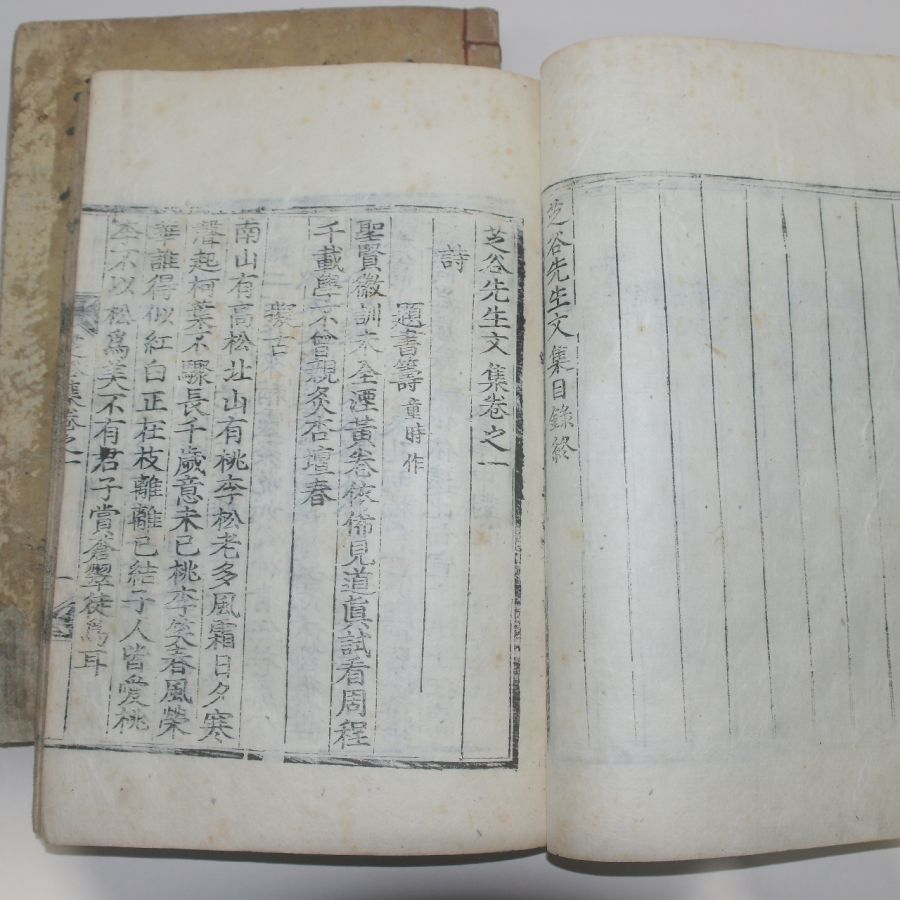 芝谷先生文集目錄終
芝谷先生文集卷之一
詩
題書籌 童時作
聖賢徽訓未全湮黃卷依俙見道眞試看周程
千載學不曾親炙杏壇春
擬古
南山有高松北山有桃李松老多風霜日夕寒
聲起柯葉不驟長千歲意未已桃李笑春風榮
華誰得似紅白正枉枝離離已結子人皆愛桃
李不以松爲美不有君子賞蒼翠徒爲耳
文集卷之一